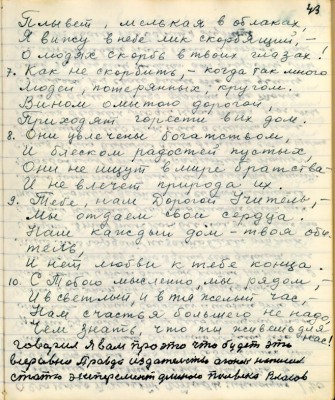 43
Плывёт, мелькая в облаках,
Я вижу в небе лик скорбящий, –
О людях скорбь в твоих глазах!
7. Как не скорбить, – когда так много
Людей, потерянных, кругом.
Вином омытою дорогой,
Приходят горести в их дом.
8. Они увлечены богатством,
И блеском радостей пустых,
Они не ищут в мире братства –
И не влечет природа их.
9. Тебе, наш Дорогой Учитель, –
Мы отдаем свои сердца.
Нам каждый дом – твоя оби-
тель,
И нет любви к тебе конца.
10. С Тобою мысленно, мы рядом, –
И в светлый, и в тяжелый час, –
Нам счастья большего не надо,
Чем знать, что ты живешь для
нас!
говорил я вам про это что будет это
всеравно Правда издательство огонек написал
статю эксперемент длиною Власов